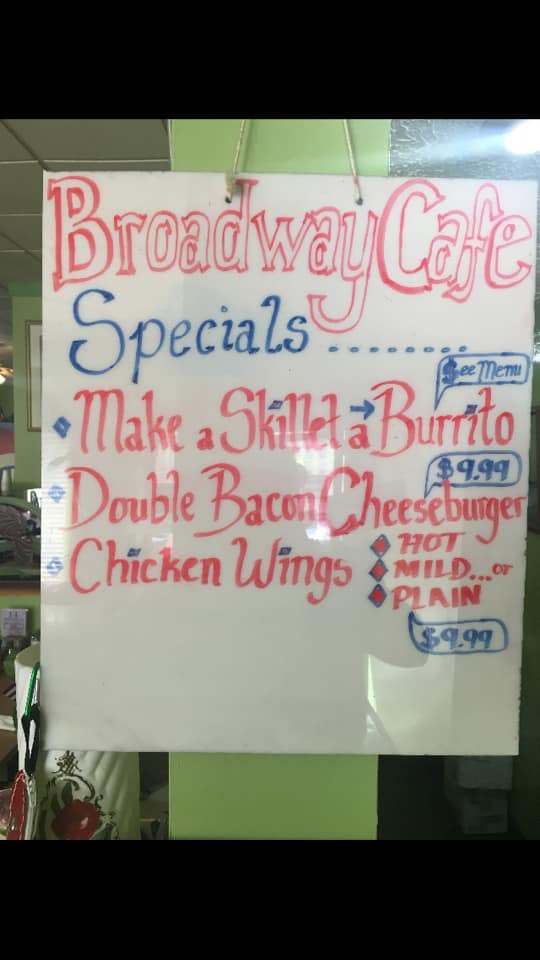 Broadway Cafe
Specials ........
See Menu
Make a Skillet → a Burrito
$9.99
Double Bacon Cheeseburger
Chicken Wings
HOT
MILD... or
PLAIN
$9.99